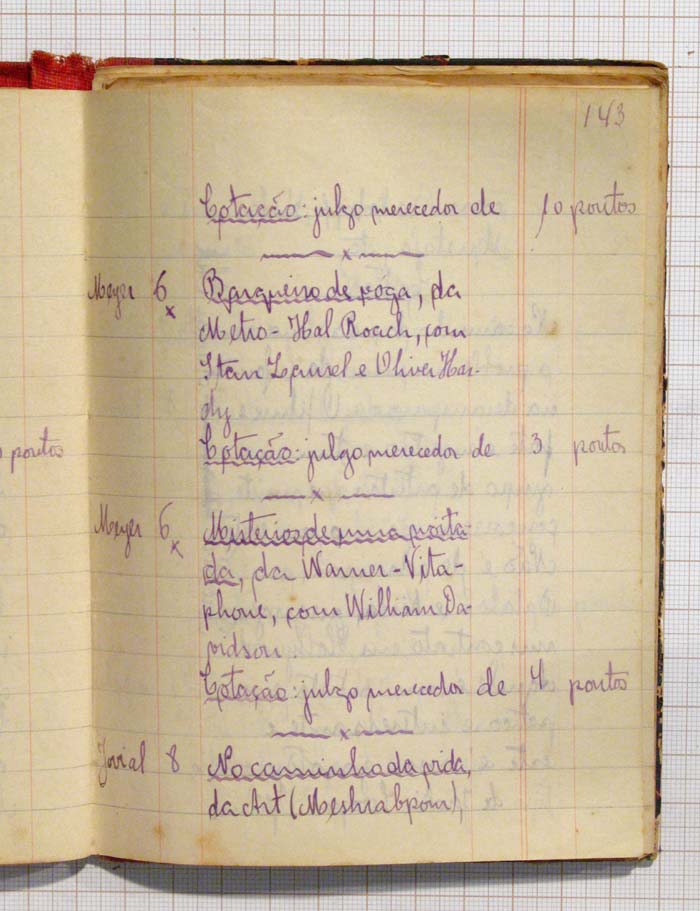 143
Cotação: julgo merecedor de 10 pontos
x
Meyer 6 x Barqueiro de voga, da
Metro-Hal Roach, com
Stan Laurel e Oliver Har-
dy
pontos Cotação: julgo merecedor de 3 pontos
x
Meyer 6 x Misterios de uma noita
da, da Warner-Vita-
phone, com William Da-
vidson.
Cotação: julgo merecedor de 4 pontos
x
Jovial 8 No caminho da vida,
da Art (Meshrabpom),